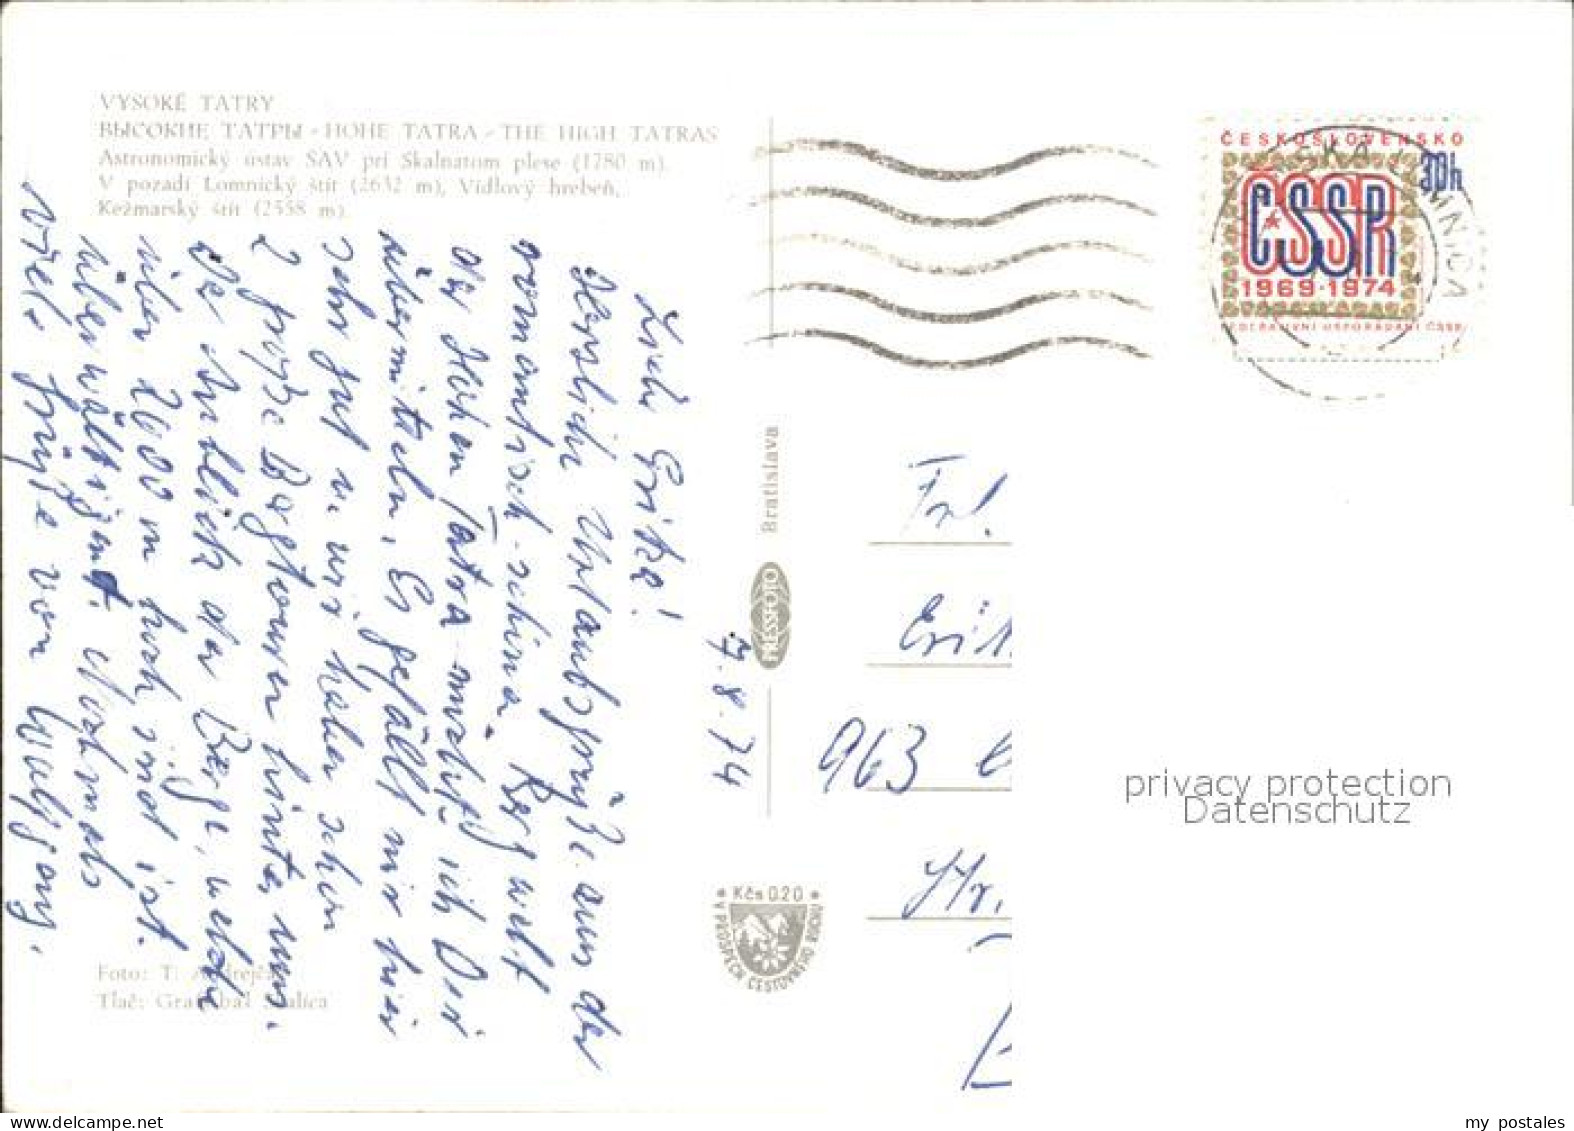 VYSOKÉ TATRY
ВЫСОКИЕ ТАТРЫ - HOHE TATRA - THE HIGH TATRAS
Astronomický ústav SAV pri Skalnatom plese (1780 m).
V pozadí Lomnický štít (2632 m), Vidlový hrebeň,
Kežmarský štít (2558 m)
7.8.74
Liebe Erika!
Herzliche Urlaubsgrüße aus der
romantisch-schönen Bergwelt
der Hohen Tatra möchte ich Dir
übermitteln. Es gefällt mir hier
sehr gut u. wir haben schon
2 große Bergtouren hinter uns.
Der Anblick der Berge, welche
über 2000 m hoch sind ist
überwältigend. Nochmals
viele Grüße von Wolfgang.
Foto: T. Andrejčák
Tlač:
PRESSFOTO Bratislava
* Kčs 0.20 *
V PROSPECH CESTOVNÉHO RUCHU
ČESKOSLOVENSKO
30h
ČSSR
1969-1974
FEDERATIVNÍ USPOŘÁDÁNÍ ČSSR
LOMNICA
Frl.
Erik
963
Str.
privacy protection
Datenschutz
my postales